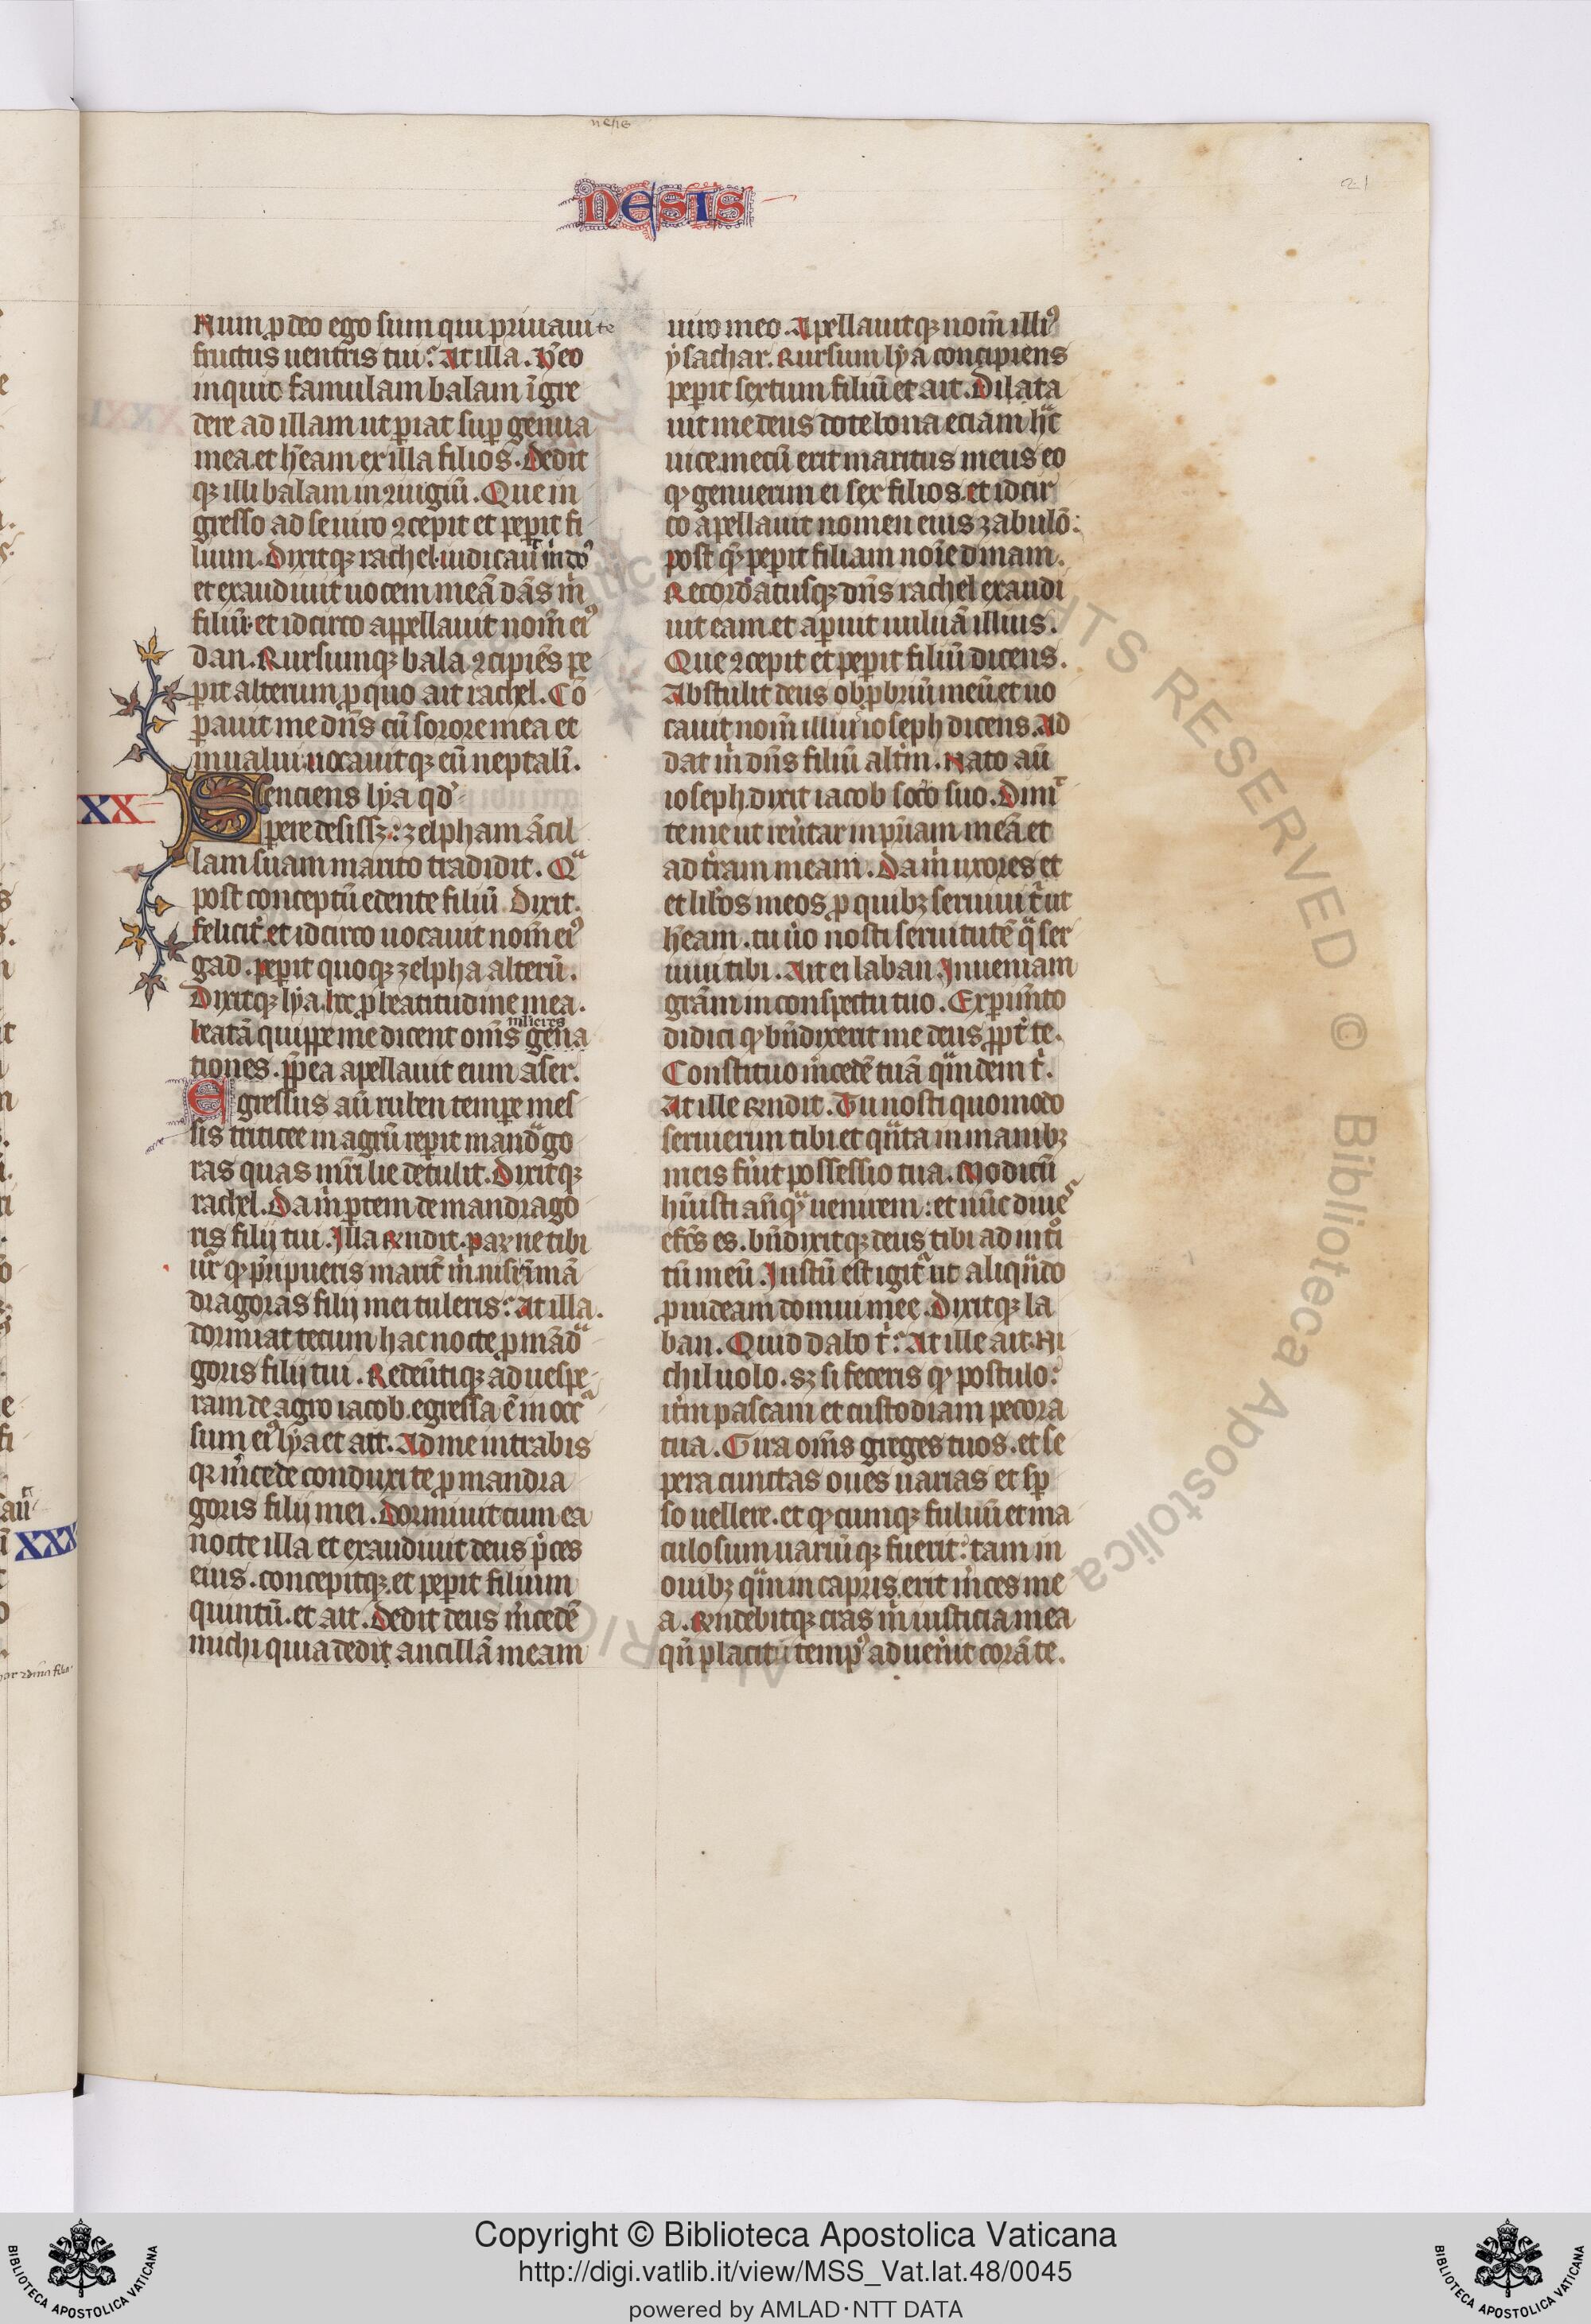 nesis
NESIS
21
Num ꝓ deo ego sum qui priuaui te
fructus uentris tui? At illa. h̄eo
inquit famulam balam īgre
dere ad illam ut ꝑiat suꝑ genua
mea. et h̄eam ex illa filios. Dedit
qꝫ illi balam in ꝯiugiū. Que in
gresso ad se uiro ꝯcepit et peꝑit fi
lium. Dixitqꝫ rachel. iudicauit m̄ dn̄s
et exaudiuit uocem meā dās m̄
filiū. et idcirco appellauit nom̄ eiꝰ
dan. Rursumqꝫ bala ꝯcipiēs pe
ꝑit alterum ꝓ quo ait rachel. Cō
ꝑauit me dn̄s cū sorore mea et
inualui. uocauitqꝫ eū neptalī.
XX
Senciens lẏa qd̕
ꝑere desissꝫ: zelpham ācil
lam suam marito tradidit. Qᵃ
post conceptū edente filiū dixit.
felicit̄. et idcirco uocauit nom̄ eiꝰ
gad. peꝑit quoqꝫ zelpha alterū.
Dixitqꝫ lẏa. hec ꝓ beatitudine mea.
mlieres
beatā quippe me dicent om̄s gena
tiones. ꝓpea apellauit eum aser.
Egressus aū ruben tempe mes
sis triticee in agrū reꝑit mandᵃgo
ras quas mr̄i lie detulit. Dixitqꝫ
rachel. Da m̄ ꝑtem de mandrago
ris filij tui. Illa rn̄dit. parne tibi
ur̄ qꝫ p̄ripueris marit̄ m̄. nisi et̄ mā
dragoras filij mei tuleris? At illa.
dormiat tecum hac nocte ꝓ mādᵃ
goris filij tui. Redeūtiqꝫ ad uespe
ram de agro iacob. egressa ē in occᵃ
sum eiꝰ lẏa et ait. Ad me intrabis
qꝫ m̄cede conduxi te ꝓ mandra
goris filij mei. Dormiuit cum ea
nocte illa et exaudiuit deus p̄ces
eius. concepitqꝫ. et peꝑit filium
quintū. et ait. Dedit deus m̄cedē
michi quia dedit ancillā meam
uiro meo. Apellauitqꝫ nom̄ illiꝰ
ẏsachar. Rursum lẏa concipiens
peꝑit sextum filiū et ait. Dilata
uit me deus dote bona eciam hᵃc
uice. mecū erit maritus meus eo
qꝫ genuerim ei sex filios. et idcir
co apellauit nomen euis zabulō:
post qᵃꝫ peꝑit filiam noīe dinam.
Recordatusqꝫ dn̄s rachel exaudi
uit eam. et aꝑuit uuluā illius.
Que ꝯcepit et peꝑit filiū dicens.
Abstulit deus obꝓbriū meū et uo
cauit nom̄ illiuꝰ ioseph dicens. Ad
dat m̄ dn̄s filiū alt̄m. Nato aū
ioseph. dixit iacob soc̄o suo. Dimit
te me ut reūtar in pr̄iam meā et
ad t̄ram meam. Da m̄ uxores et
et lib̄os meos ꝓ quibꝫ seruiui t̄ ut
h̄eam. tu ūo nosti seruitutē qᵃ ser
uiui tibi. Ait ei laban. Inueniam
gr̄am in conspectu tuo. Exꝑim̄to
didici qꝫ bn̄dixerit me deus ꝓpt̄ te.
Constituo m̄cedē tuā qᵃm dem t̄.
At ille rn̄dit. Tu nosti quomodo
seruierim tibi. et qᵃnta in manibꝫ
meis fūit possessio tua. Modicū
hūisti an̄qᵃ uenirem: et nūc diues
efc̄s es. bn̄dixitqꝫ deus tibi ad int̄oi
tū meū. Iustū est igit̄ ut aliqᵃndo
ꝓuideam domui mee. Dixitqꝫ la
ban. Quid dabo t̄? At ille ait. Ni
chil uolo. sꝫ si feceris qꝫ postulo:
it̄m pascam et custodiam pecora
tua. Gira om̄s greges tuos. et se
pera cunctas oues uarias et sp̄
so uellere. et qꝫcumqꝫ fuluū et ma
culosum uariūqꝫ fuerit: tam in
ouibꝫ qᵃm in capris. erit m̄ces me
a. Rn̄debitqꝫ cras m̄ iusticia mea
qn̄ placiti tempꝰ aduenerit corā te.
XXX
Copyright © Biblioteca Apostolica Vaticana
http://digi.vatlib.it/view/MSS_Vat.lat.48/0045
powered by AMLAD·NTT DATA
BIBLIOTECA APOSTOLICA VATICANA
BIBLIOTECA APOSTOLICA VATICANA